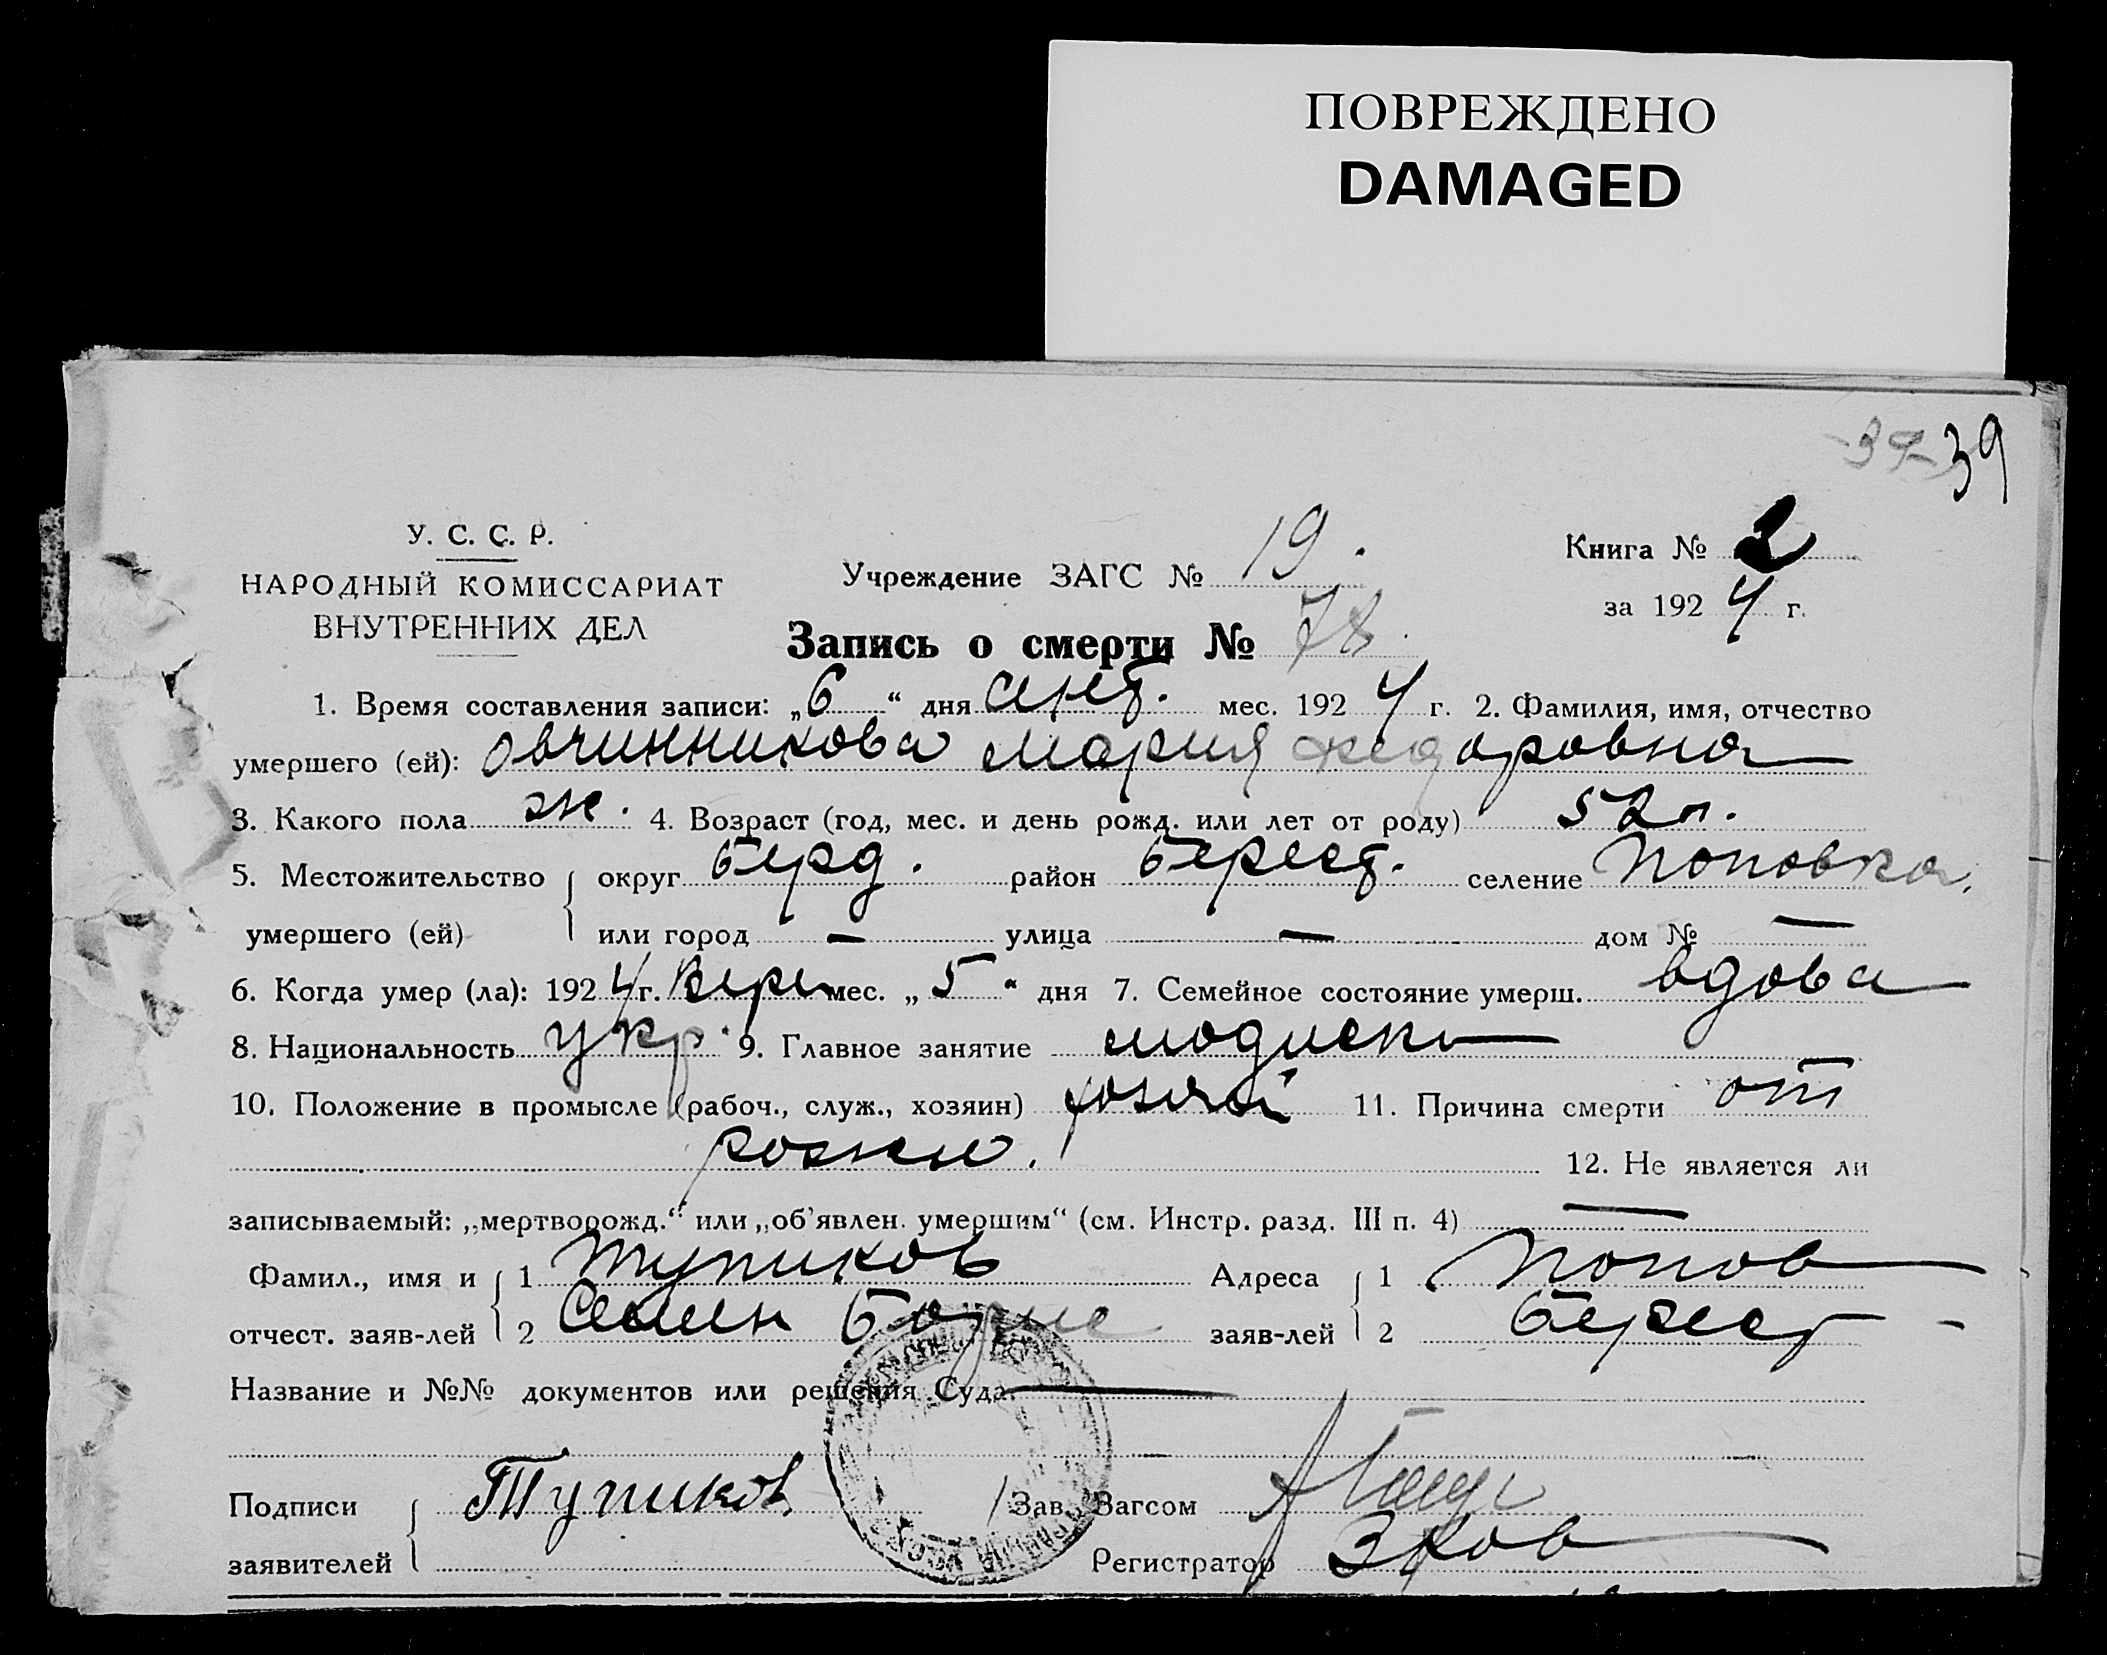 ПОВРЕЖДЕНО
DAMAGED
39
У. С. С. Р.
НАРОДНЫЙ КОМИССАРИАТ
ВНУТРЕННИХ ДЕЛ
Учреждение ЗАГС № 19.
Книга № 2
за 1924 г.
Запись о смерти № 78.
1. Время составления записи: „6“ дня сент. мес. 1924 г. 2. Фамилия, имя, отчество
умершего (ей): Овчинникова Мария Федоровна
3. Какого пола ж. 4. Возраст (год, мес. и день рожд. или лет от роду) 52 л.
5. Местожительство округ Берд. район Берест. селение Поповка.
умершего (ей) или город — улица — дом № —
6. Когда умер (ла): 1924 г. Вере мес. „5“ дня 7. Семейное состояние умерш. вдова
8. Национальность укр. 9. Главное занятие
10. Положение в промысле (рабоч., служ., хозяин) 11. Причина смерти от
рожи. 12. Не является ли
записываемый: „мертворожд.“ или „об’явлен. умершим“ (см. Инстр. разд. III п. 4) —
Фамил., имя и 1 Тупиков Адреса 1 Попов
отчест. заяв-лей 2 Семен Борис заяв-лей 2 Берест
Название и №№ документов или решения Суда —
Подписи Тупиков Зав. Загсом
заявителей Регистратор